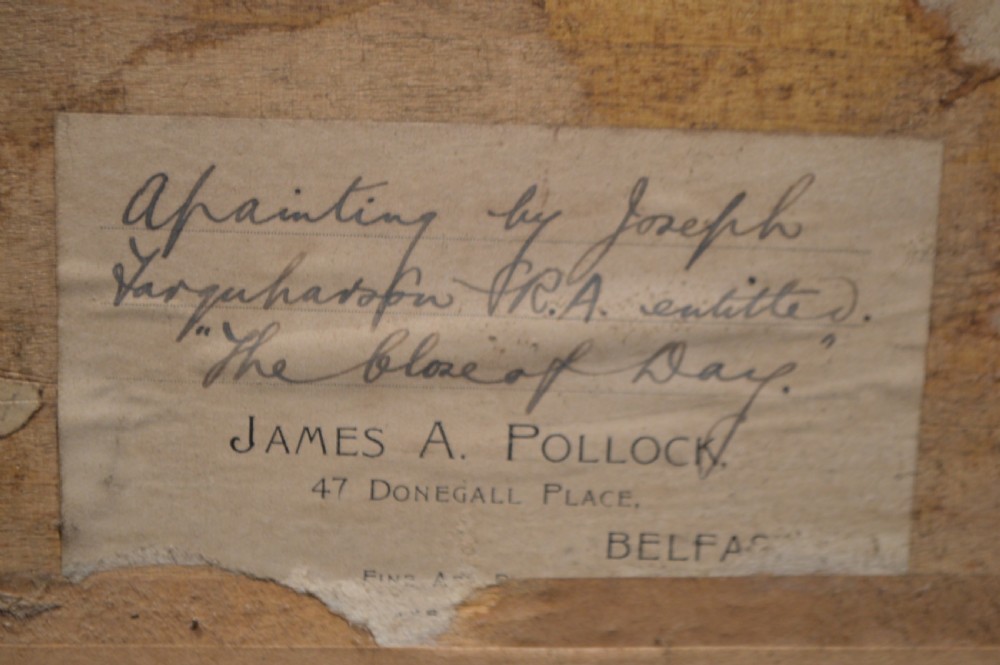 A painting by Joseph
Farquharson R.A. entitled.
"The Close of Day."
JAMES A. POLLOCK,
47 DONEGALL PLACE,
BELFAS
FINE